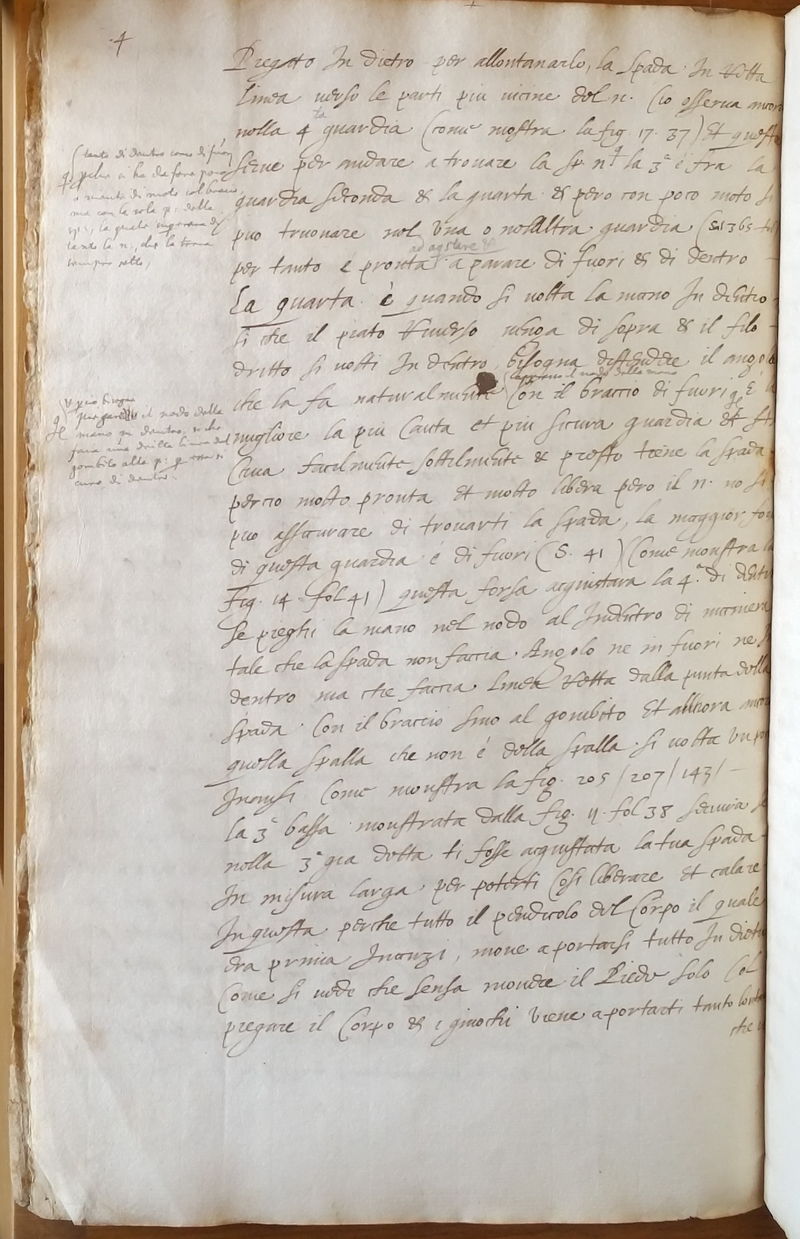 4
Piegato In dietro per allontanarlo, la spada In retta
linea verso le parti piu uicine del n. Cio osserua ancora
nella 4ta guardia (come mostra la fig. 17. 37) Et questa
serue per andare a trouare la sp. la 3a è fra la
guardia seconda & la quarta & pero con poco moto si
puo truouare nel una o nell altra guardia
per tanto è pronta a parare di fuori & di dentro
La quarta è quando si uolta la mano In dentro
si che il piato riuerso uenga di sopra & il filo
dritto si uolti In dentro, bisogna distendere il angolo
che la fa naturalmente con il braccio di fuori
migliore la piu Cauta et piu sicura guardia
Caua facilmente sottilmente & presto tiene la spada
percio molto pronta et molto libera pero il n. no si
puo assicurare di trouarti la spada, la maggior
di questa guardia e di fuori (S. 41) Come monstra la
Fig. 14. fol 41) questa forsa acquistara la 4a di dentro
se pieghi la mano nel nodo al Indentro di maniera
tale che la spada non faccia Angolo ne in fuori ne
dentro ma che faccia linea retta dalla punta della
spada Con il braccio sino al gombito et allhora ancora
quella spalla che non è della spalla si uolta un po
Inansi Come monstra la fig. 205 / 207 / 143 /
la 3a bassa monstrata dalla fig. 11 fol 38
nella 3a gia detta ti fosse acquistata la tua spada
In misura larga per poterti Cosi liberare et calare
In questa perche tutto il pendicolo del Corpo il quale
era prima Inanzi, moue a portarsi tutto In dietro
Come si uede che sensa mouere il Piede solo Col
piegare il Corpo & i ginochi viene a portarti tanto
che
(tanto di dentro come di fuori
ma con la sola p. della
la quale
sempre retto,
il nodo della
mano in dentro, si che
fara una dritta linea dal
gombito alla p:
di dentro.
il nodo della mano